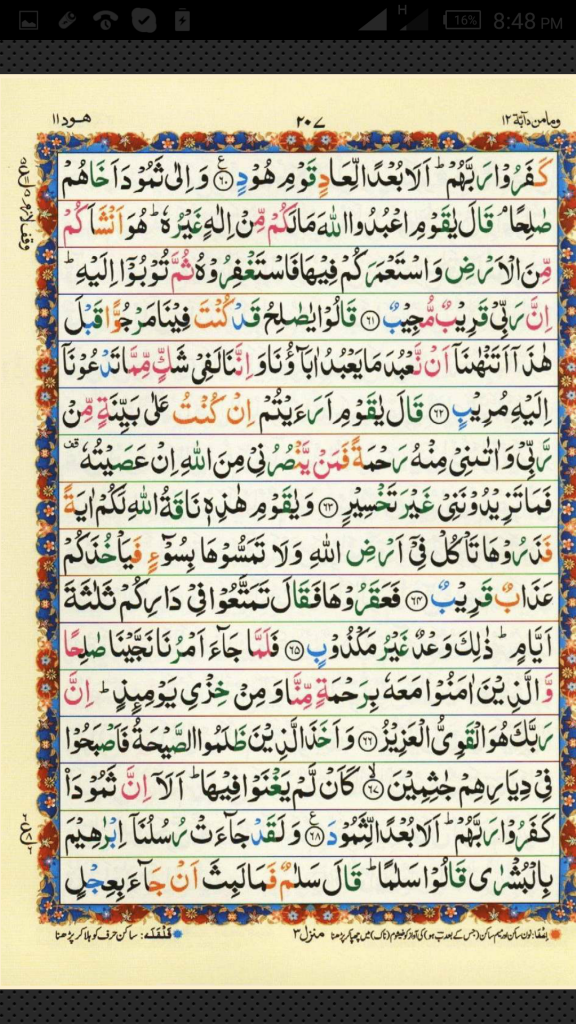 H 16% 8:48 PM
وما من دآبة ١٢ ٢٠٧ هود ١١
كَفَرُوْا رَبَّهُمْ ؕ اَلَا بُعْدًا لِّعَادٍ قَوْمِ هُوْدٍ ﴿۶۰﴾ وَ اِلٰى ثَمُوْدَ اَخَاهُمْ
صٰلِحًا ۘ قَالَ يٰقَوْمِ اعْبُدُوا اللّٰهَ مَا لَكُمْ مِّنْ اِلٰهٍ غَيْرُهٗ ؕ هُوَ اَنْشَاَكُمْ
مِّنَ الْاَرْضِ وَ اسْتَعْمَرَكُمْ فِيْهَا فَاسْتَغْفِرُوْهُ ثُمَّ تُوْبُوْۤا اِلَيْهِ ؕ
اِنَّ رَبِّيْ قَرِيْبٌ مُّجِيْبٌ ﴿۶۱﴾ قَالُوْا يٰصٰلِحُ قَدْ كُنْتَ فِيْنَا مَرْجُوًّا قَبْلَ
هٰذَاۤ اَتَنْهٰىنَاۤ اَنْ نَّعْبُدَ مَا يَعْبُدُ اٰبَآؤُنَا وَ اِنَّنَا لَفِيْ شَكٍّ مِّمَّا تَدْعُوْنَاۤ
اِلَيْهِ مُرِيْبٍ ﴿۶۲﴾ قَالَ يٰقَوْمِ اَرَءَيْتُمْ اِنْ كُنْتُ عَلٰى بَيِّنَةٍ مِّنْ
رَّبِّيْ وَ اٰتٰىنِيْ مِنْهُ رَحْمَةً فَمَنْ يَّنْصُرُنِيْ مِنَ اللّٰهِ اِنْ عَصَيْتُهٗ ۫
فَمَا تَزِيْدُوْنَنِيْ غَيْرَ تَخْسِيْرٍ ﴿۶۳﴾ وَ يٰقَوْمِ هٰذِهٖ نَاقَةُ اللّٰهِ لَكُمْ اٰيَةً
فَذَرُوْهَا تَاْكُلْ فِيْۤ اَرْضِ اللّٰهِ وَلَا تَمَسُّوْهَا بِسُوْٓءٍ فَيَاْخُذَكُمْ
عَذَابٌ قَرِيْبٌ ﴿۶۴﴾ فَعَقَرُوْهَا فَقَالَ تَمَتَّعُوْا فِيْ دَارِكُمْ ثَلٰثَةَ
اَيَّامٍ ؕ ذٰلِكَ وَعْدٌ غَيْرُ مَكْذُوْبٍ ﴿۶۵﴾ فَلَمَّا جَآءَ اَمْرُنَا نَجَّيْنَا صٰلِحًا
وَّ الَّذِيْنَ اٰمَنُوْا مَعَهٗ بِرَحْمَةٍ مِّنَّا وَ مِنْ خِزْيِ يَوْمِئِذٍ ؕ اِنَّ
رَبَّكَ هُوَ الْقَوِيُّ الْعَزِيْزُ ﴿۶۶﴾ وَ اَخَذَ الَّذِيْنَ ظَلَمُوا الصَّيْحَةُ فَاَصْبَحُوْا
فِيْ دِيَارِهِمْ جٰثِمِيْنَ ﴿۶۷﴾ كَاَنْ لَّمْ يَغْنَوْا فِيْهَا ؕ اَلَاۤ اِنَّ ثَمُوْدَا۟
كَفَرُوْا رَبَّهُمْ ؕ اَلَا بُعْدًا لِّثَمُوْدَ ﴿۶۸﴾ وَ لَقَدْ جَآءَتْ رُسُلُنَاۤ اِبْرٰهِيْمَ
بِالْبُشْرٰى قَالُوْا سَلٰمًا ؕ قَالَ سَلٰمٌ فَمَا لَبِثَ اَنْ جَآءَ بِعِجْلٍ
اِخفا: نون ساکن اور میم ساکن (جس کے بعد ب ہو) کی آواز کو خیشوم (ناک) میں چھپا کر پڑھنا منزل ٣ قلقلہ: ساکن حرف کو ہلا کر پڑھنا